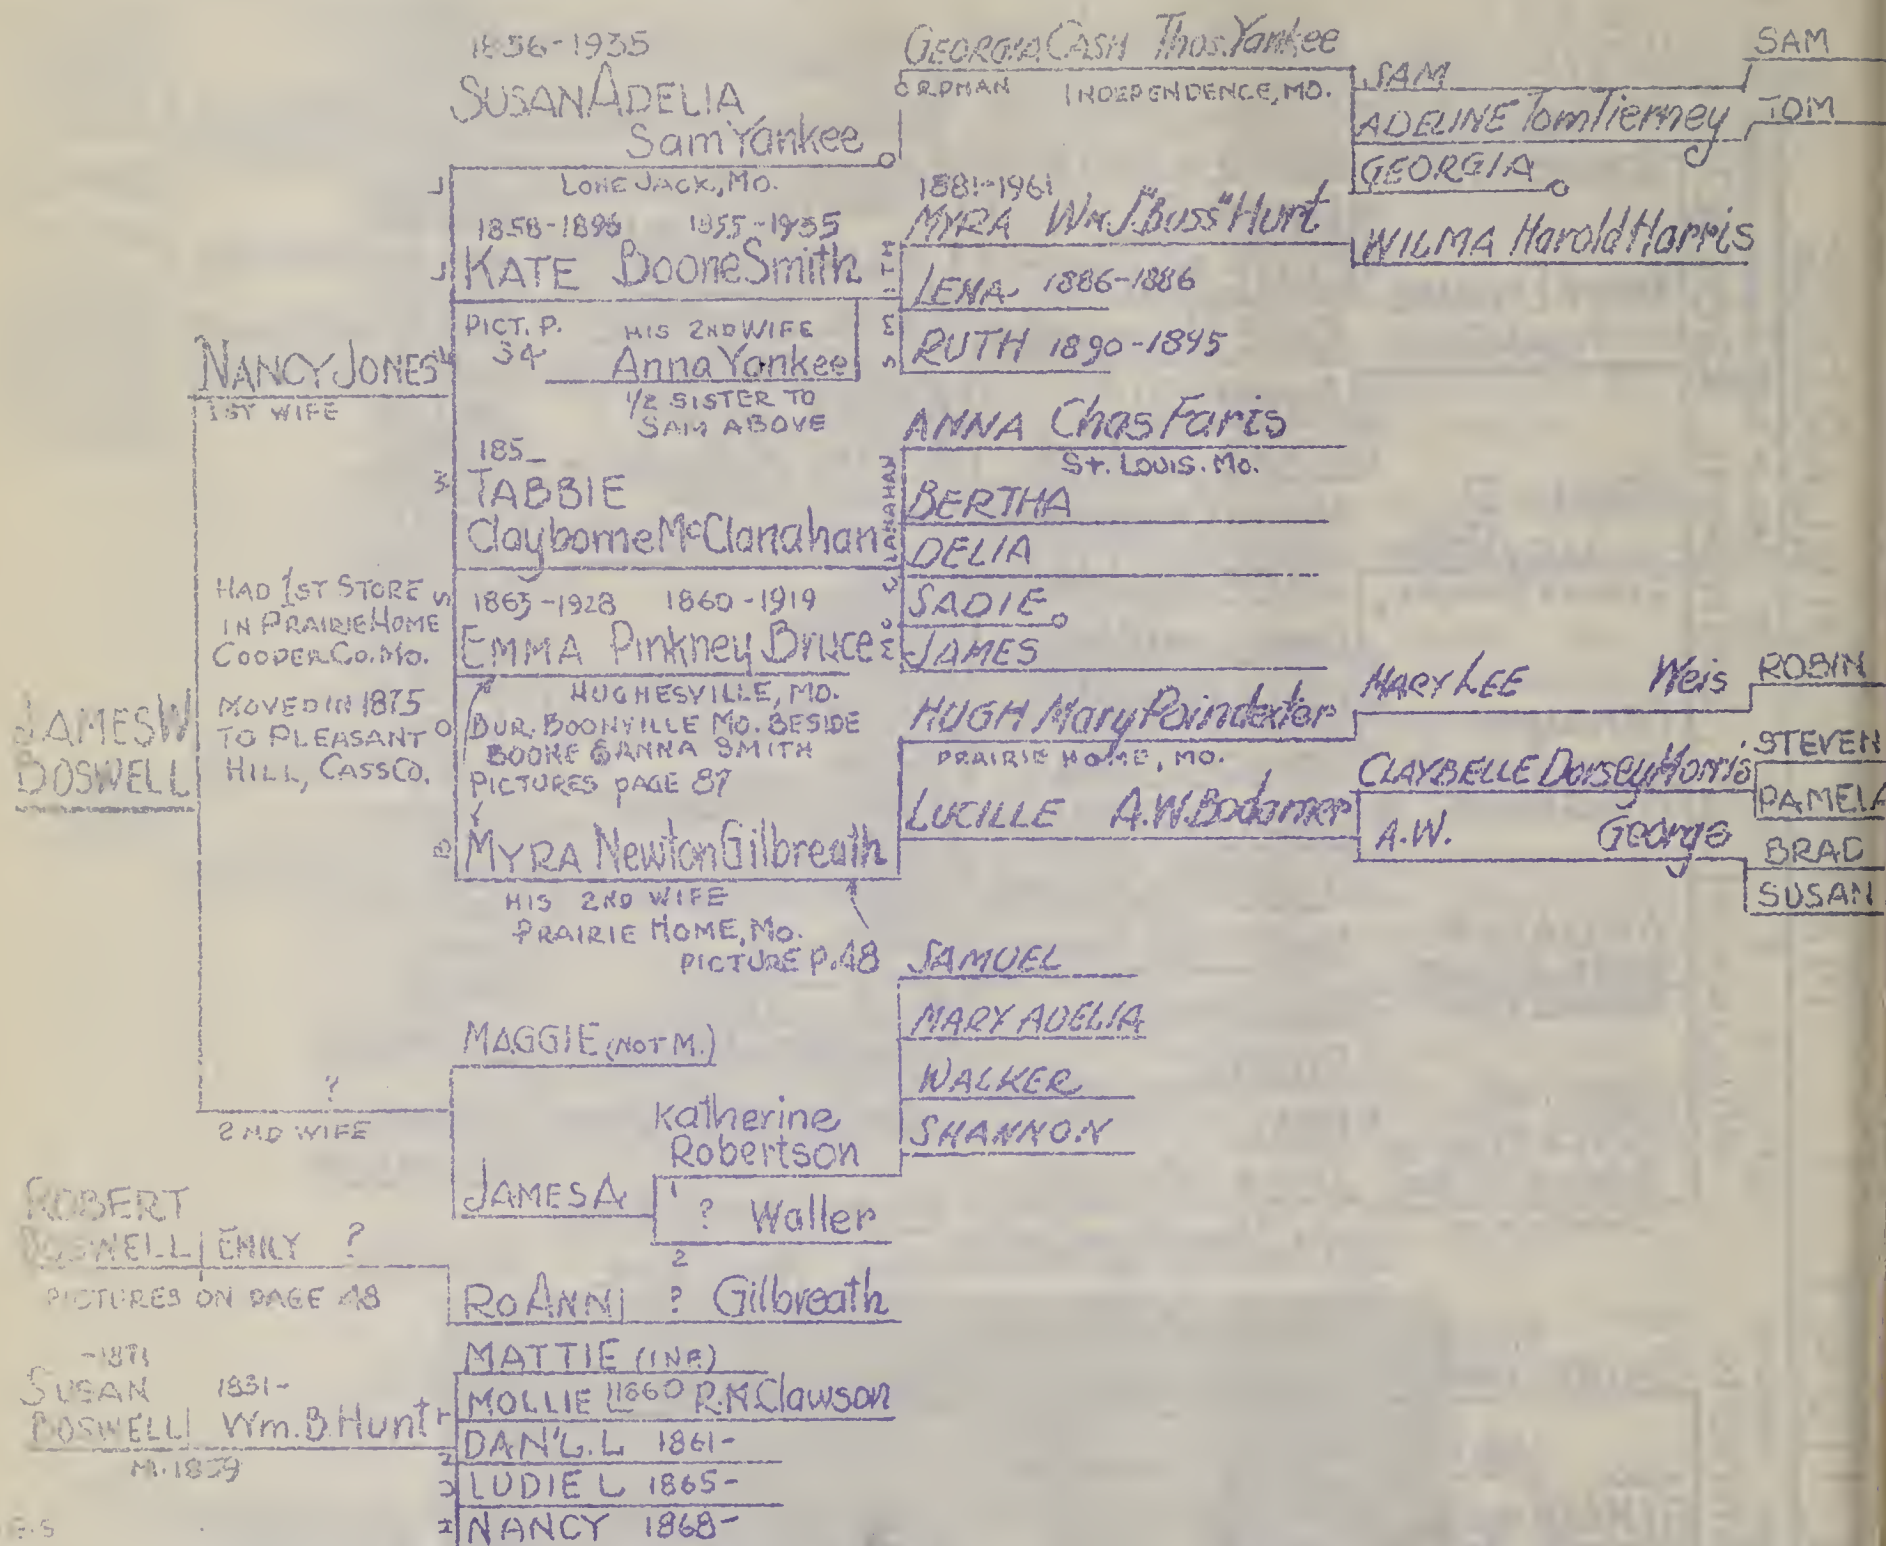 JAMES W
BOSWELL
NANCY JONES
1ST WIFE
HAD 1ST STORE
IN PRAIRIE HOME
COOPER CO. MO.
MOVED IN 1875
TO PLEASANT
HILL, CASS CO.
?
2ND WIFE
ROBERT
BOSWELL EMILY ?
PICTURES ON PAGE 48
-1871
SUSAN 1831-
BOSWELL Wm. B. Hunt
M. 1859
J O N E S
1856-1935
SUSAN ADELIA
Sam Yankee
LONE JACK, MO.
1858-1896 1855-1935
KATE Boone Smith
PICT. P.
34
HIS 2ND WIFE
Anna Yankee
1/2 SISTER TO
SAM ABOVE
185_
TABBIE
Clayborne McClanahan
1863-1928 1860-1919
EMMA Pinkney Bruce
HUGHESVILLE, MO.
BUR. BOONVILLE MO. BESIDE
BOONE & ANNA SMITH
PICTURES PAGE 87
MYRA Newton Gilbreath
HIS 2ND WIFE
PRAIRIE HOME, MO.
PICTURE P. 48
MAGGIE (NOT M.)
Katherine
Robertson
JAMES A
1
? Waller
2
ROANN ? Gilbreath
MATTIE (INF)
MOLLIE L 1860 R.M. Clawson
DAN'L. L 1861-
LUDIE L 1865-
NANCY 1868-
GEORGIA CASH Thos. Yankee
ORPHAN INDEPENDENCE, MO.
1881-1961
MYRA Wm J. "Buss" Hurt
SMITH
LENA 1886-1886
RUTH 1890-1895
ANNA Chas Faris
St. LOUIS. MO.
MC CLANAHAN
BERTHA
DELIA
SADIE
JAMES
HUGH Mary Poindexter
PRAIRIE HOME, MO.
LUCILLE A.W. Bodamer
SAMUEL
MARY ADELIA
WALKER
SHANNON
SAM
ADELINE Tom Tierney
GEORGIA
WILMA Harold Harris
MARY LEE Weis
CLAYBELLE Dorsey Morris
A.W. George
SAM
TOM
ROBIN
STEVEN
PAMELA
BRAD
SUSAN